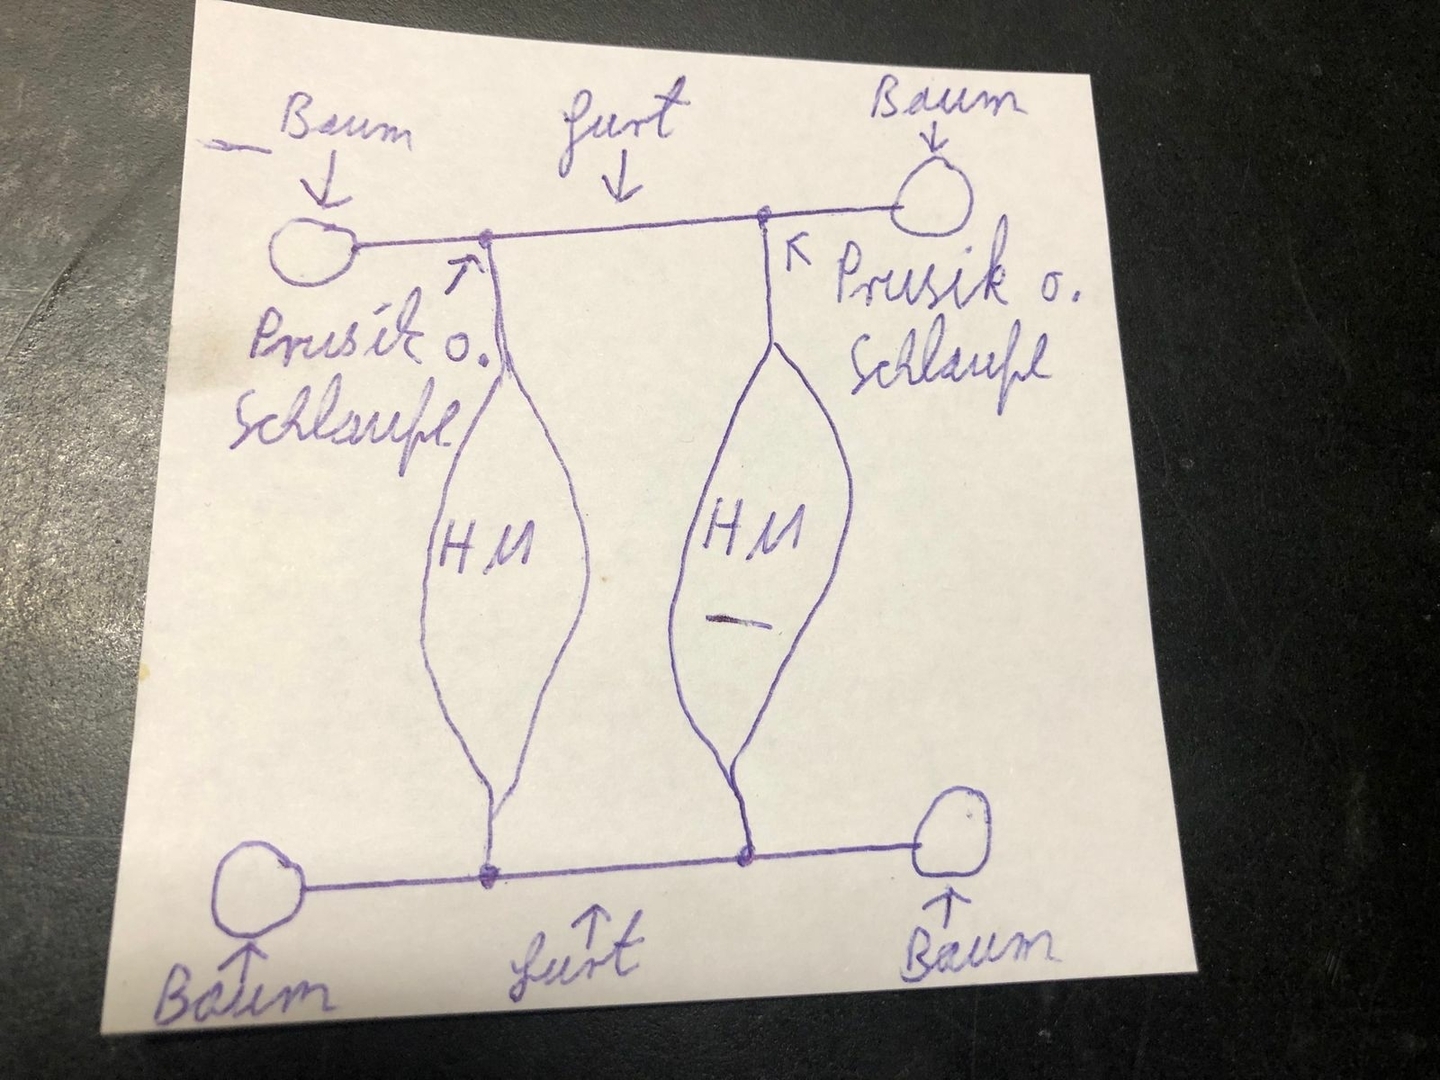 Baum
Gurt
Baum
Prusik o.
Schlaufe
Prusik o.
Schlaufe
HM
HM
Baum
Gurt
Baum